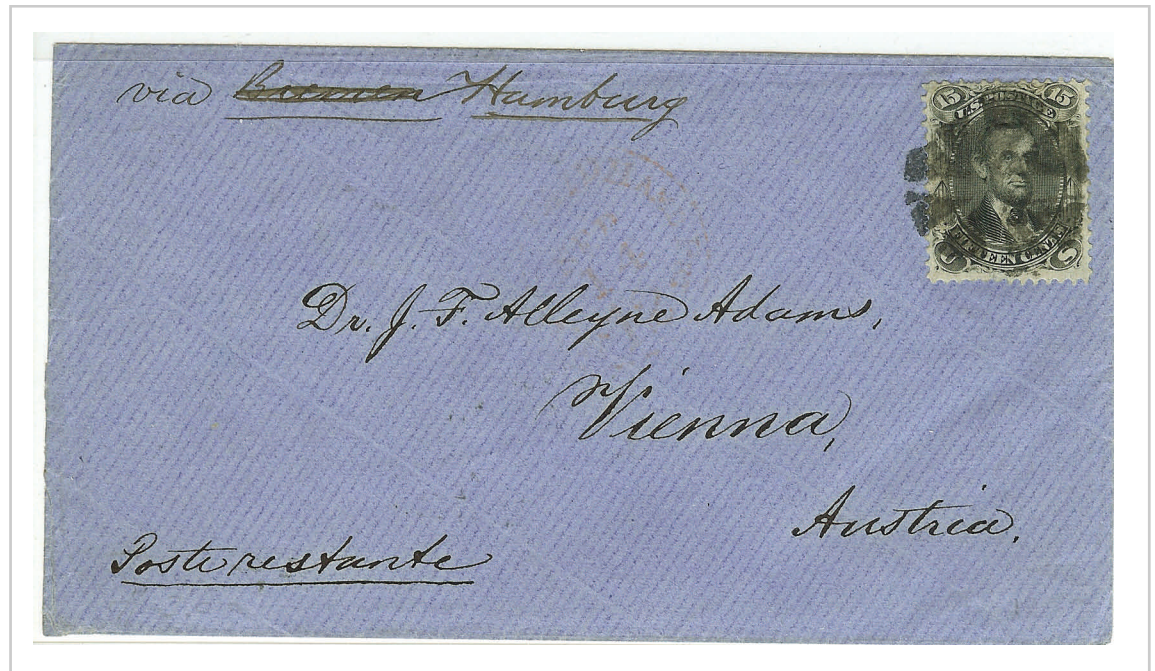 via Bremen Hamburg
15 U.S. POSTAGE 15
FIFTEEN CENTS
U S
Dr. J. F. Alleyne Adams,
Vienna,
Austria.
Poste restante